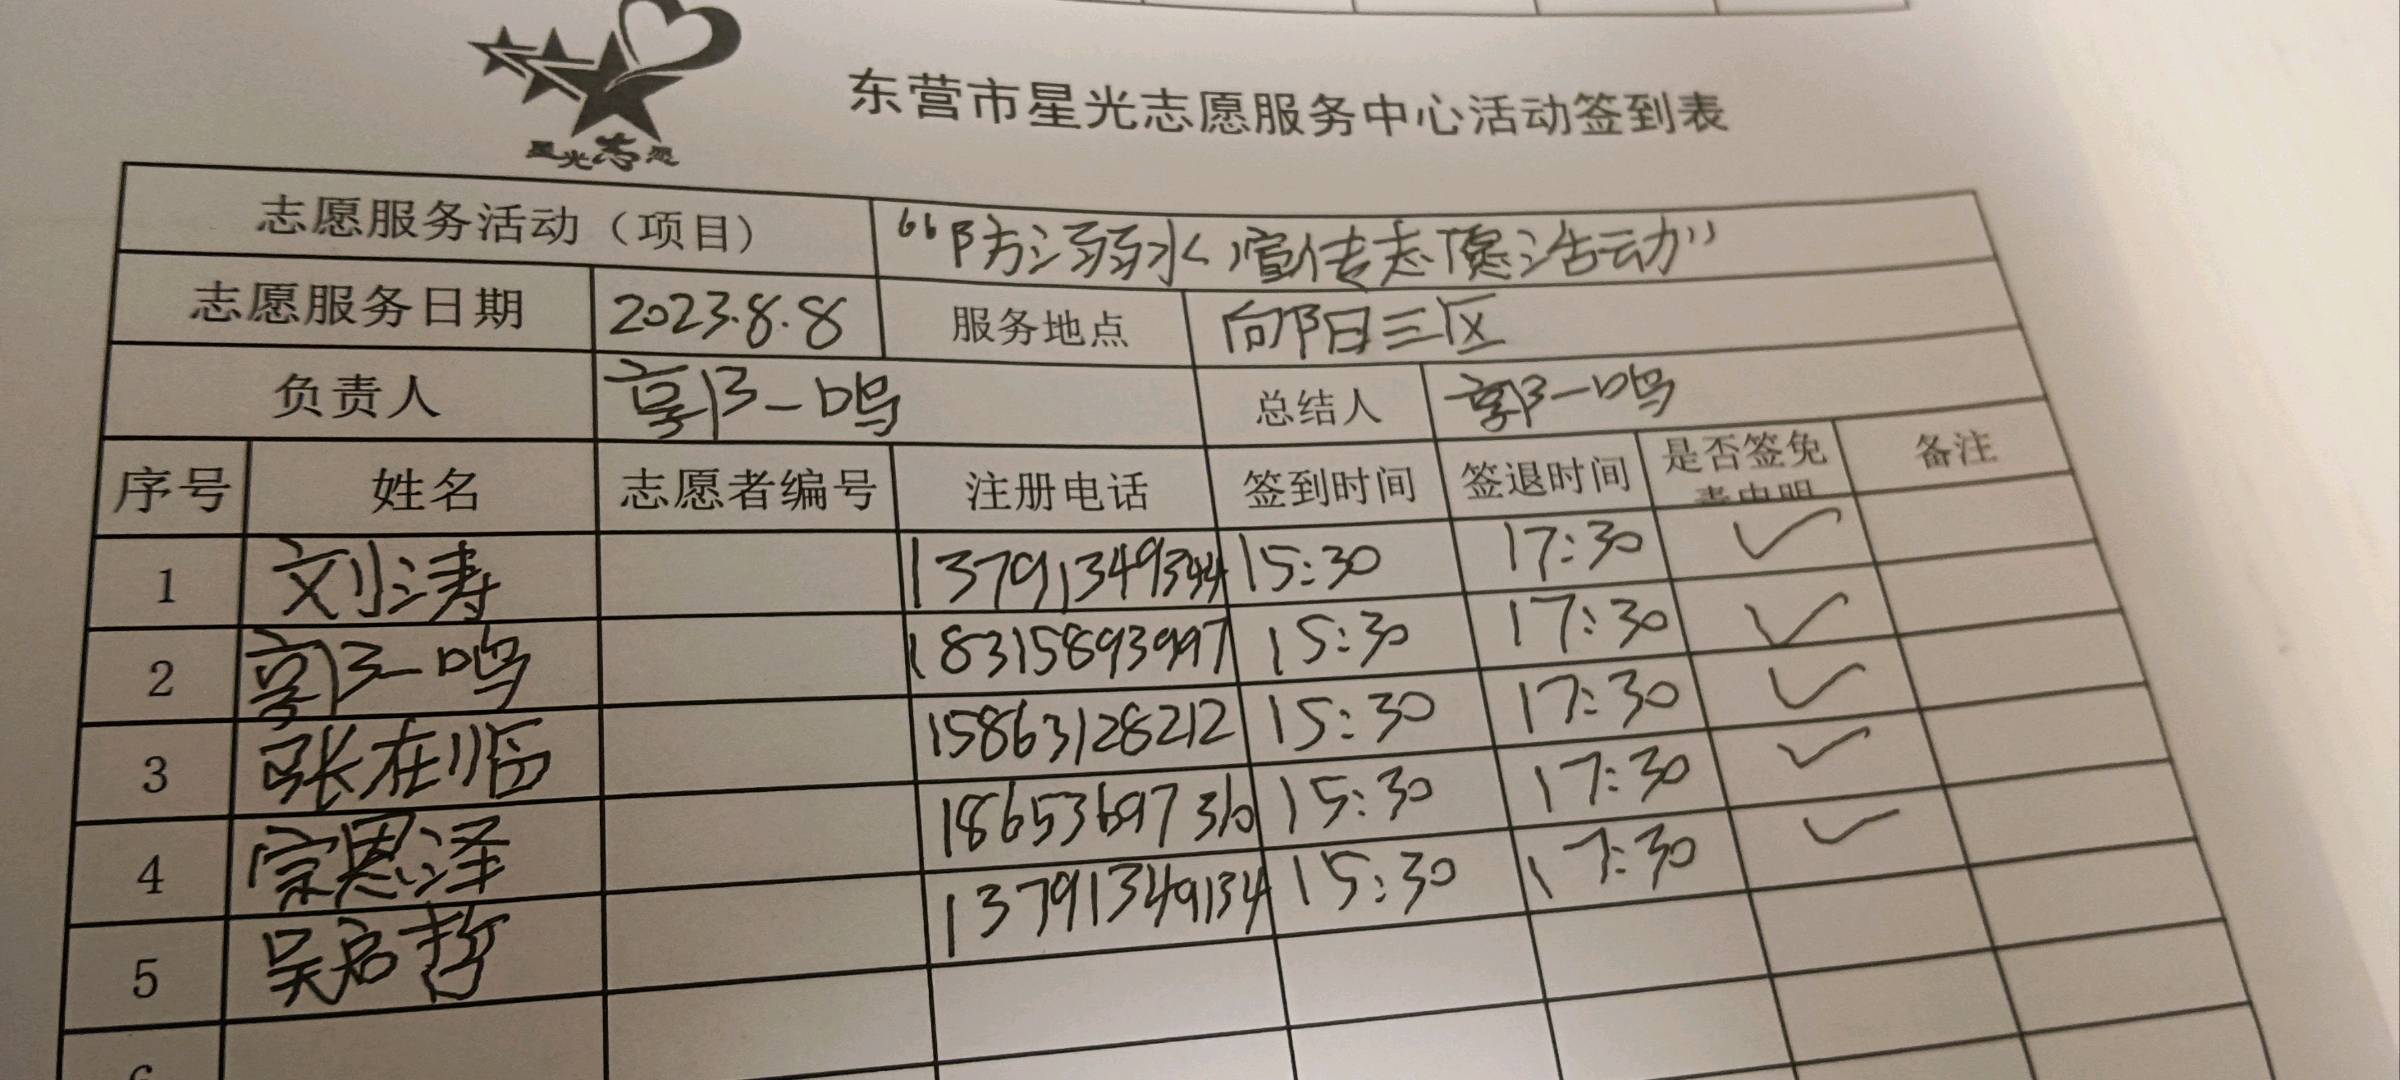 星光志愿
东营市星光志愿服务中心活动签到表
志愿服务活动（项目） “防溺水宣传志愿活动”
志愿服务日期 2023.8.8 服务地点 向阳三区
负责人 郭一鸣 总结人 郭一鸣
序号 姓名 志愿者编号 注册电话 签到时间 签退时间 是否签免责申明 备注
1 刘涛 13791349344 15:30 17:30 ✓
2 郭一鸣 18315893997 15:30 17:30 ✓
3 张在临 15863128212 15:30 17:30 ✓
4 宗恩泽 15:30 17:30 ✓
5 吴启哲 13791349134 15:30 17:30 ✓
6